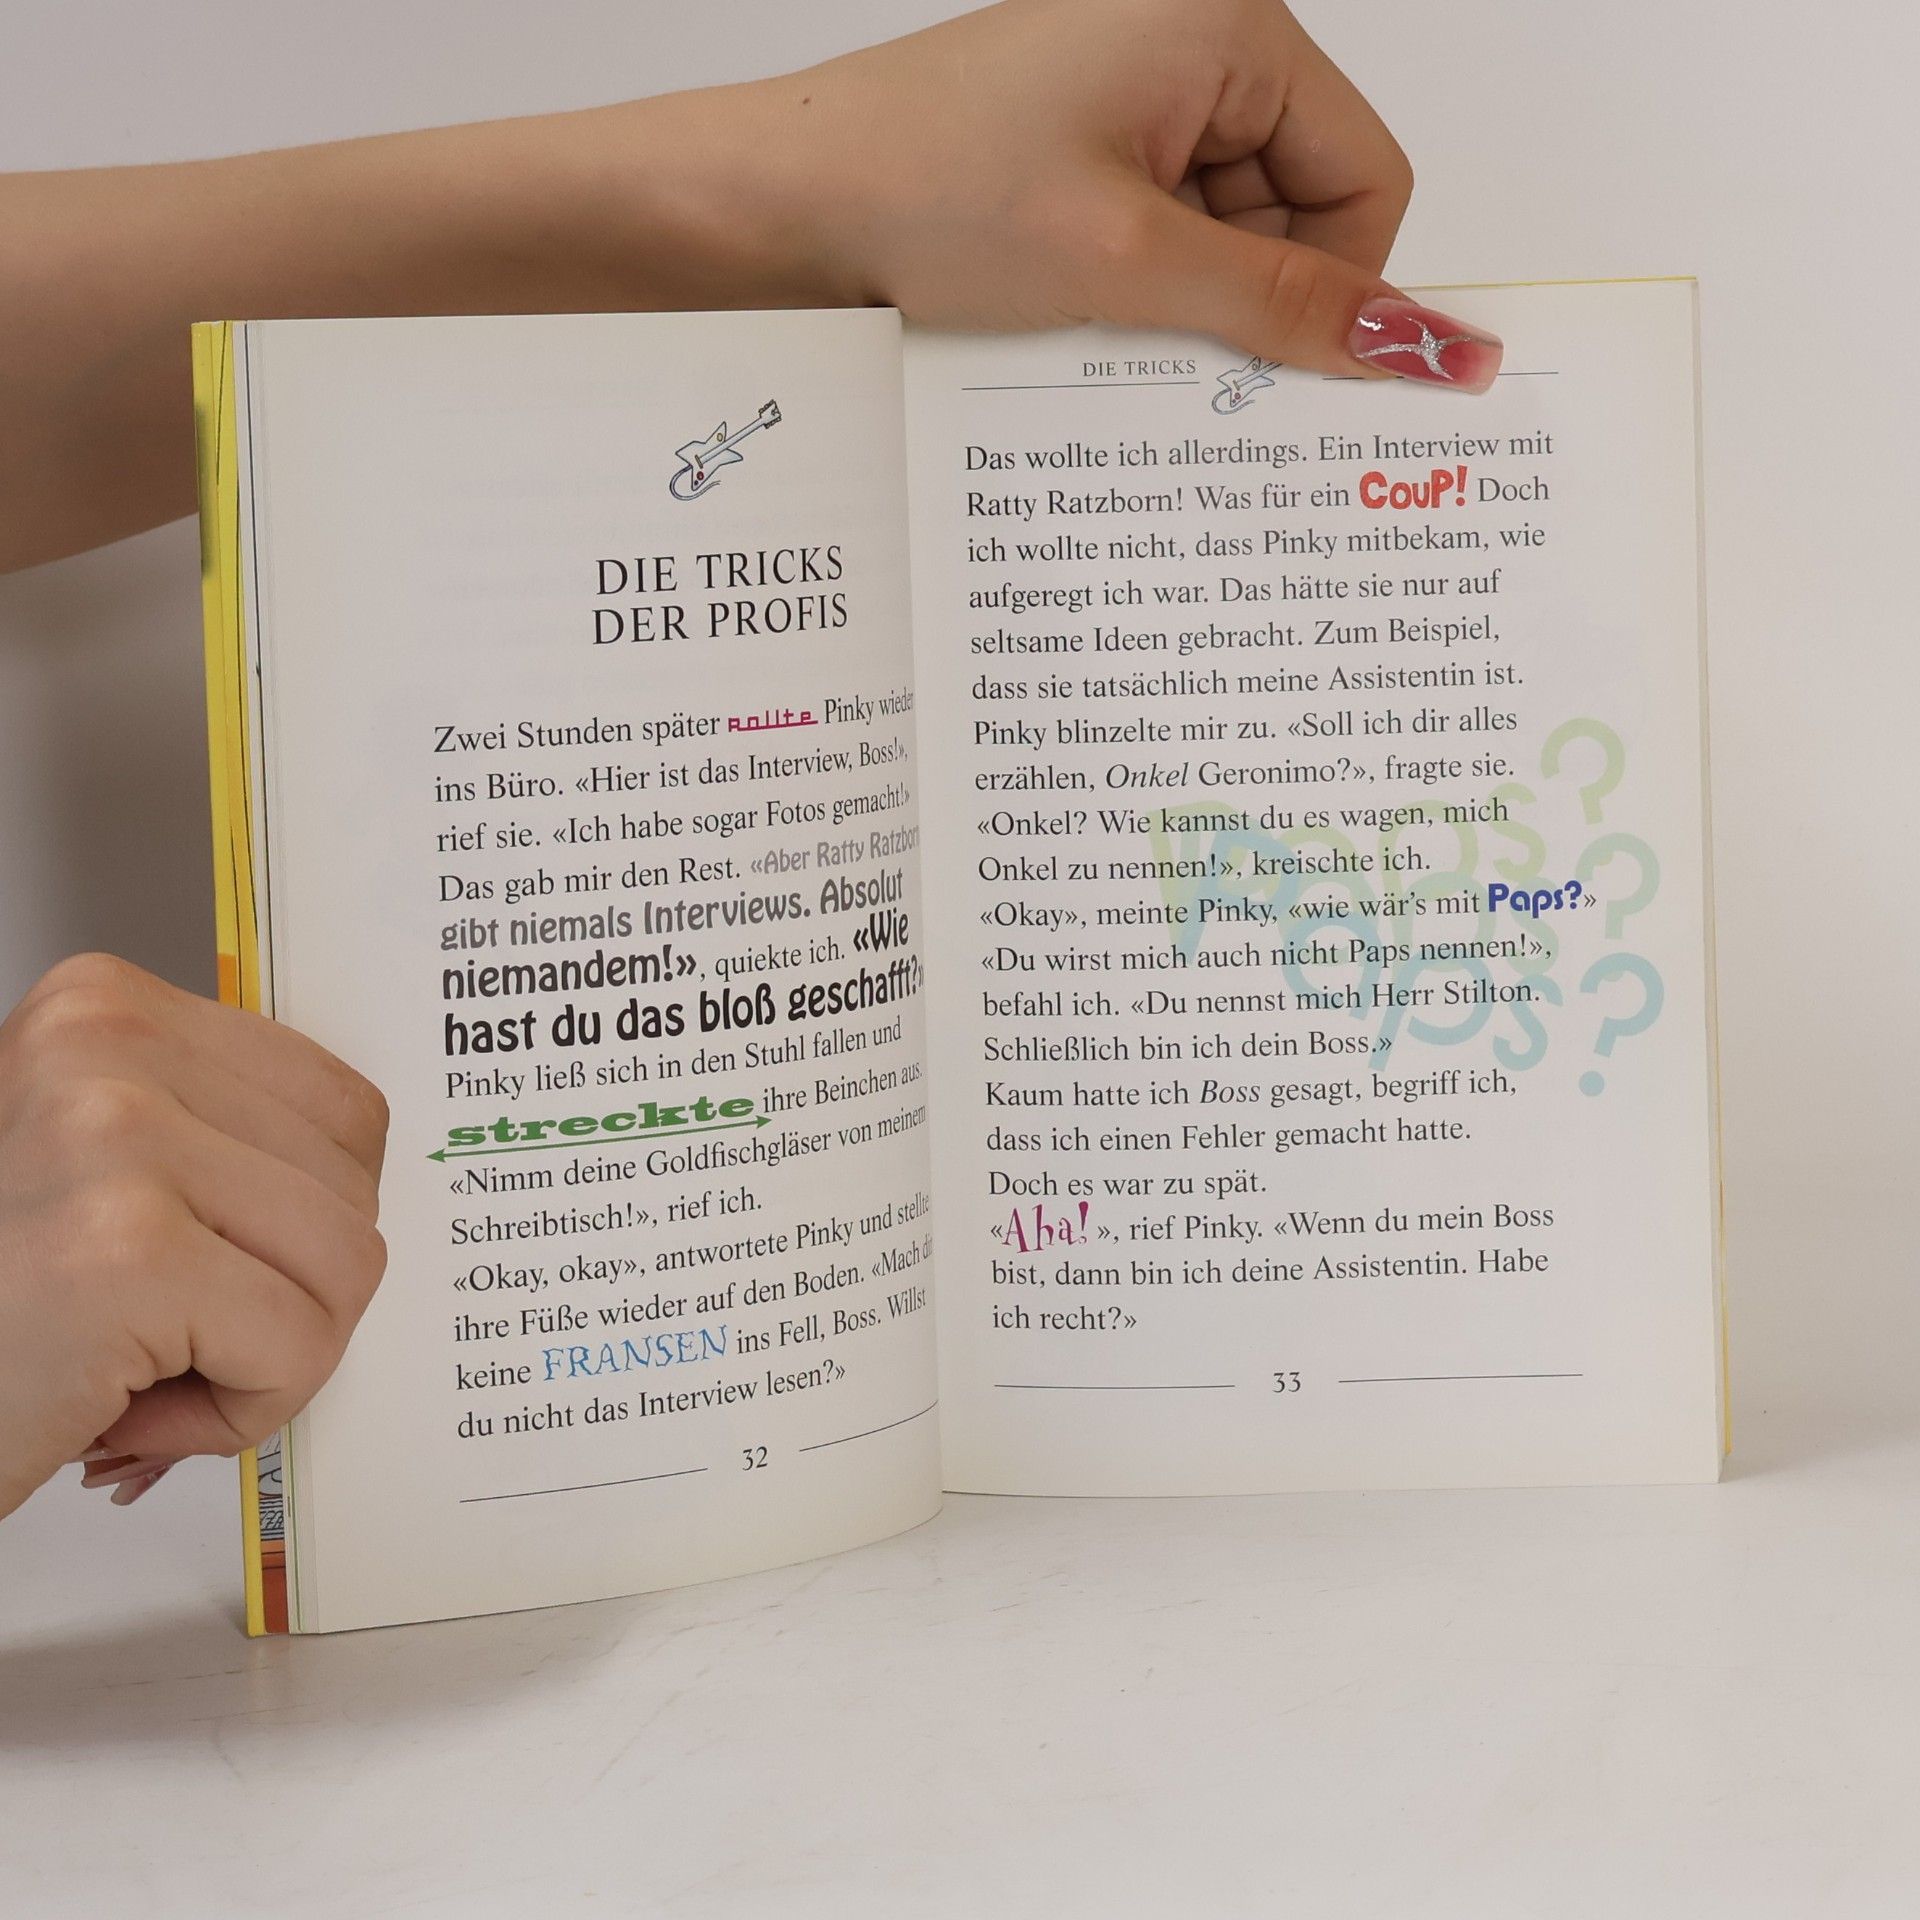 DIE TRICKS
DER PROFIS
Zwei Stunden später rollte Pinky wieder
ins Büro. «Hier ist das Interview, Boss!»,
rief sie. «Ich habe sogar Fotos gemacht!»
Das gab mir den Rest. «Aber Ratty Ratzborn
gibt niemals Interviews. Absolut
niemandem!», quiekte ich. «Wie
hast du das bloß geschafft?»
Pinky ließ sich in den Stuhl fallen und
streckte ihre Beinchen aus.
«Nimm deine Goldfischgläser von meinem
Schreibtisch!», rief ich.
«Okay, okay», antwortete Pinky und stellte
ihre Füße wieder auf den Boden. «Mach dir
keine FRANSEN ins Fell, Boss. Willst
du nicht das Interview lesen?»
32
DIE TRICKS
Das wollte ich allerdings. Ein Interview mit
Ratty Ratzborn! Was für ein CouP! Doch
ich wollte nicht, dass Pinky mitbekam, wie
aufgeregt ich war. Das hätte sie nur auf
seltsame Ideen gebracht. Zum Beispiel,
dass sie tatsächlich meine Assistentin ist.
Pinky blinzelte mir zu. «Soll ich dir alles
erzählen, Onkel Geronimo?», fragte sie.
«Onkel? Wie kannst du es wagen, mich
Onkel zu nennen!», kreischte ich.
«Okay», meinte Pinky, «wie wär's mit Paps?»
«Du wirst mich auch nicht Paps nennen!»,
befahl ich. «Du nennst mich Herr Stilton.
Schließlich bin ich dein Boss.»
Kaum hatte ich Boss gesagt, begriff ich,
dass ich einen Fehler gemacht hatte.
Doch es war zu spät.
«Aha!», rief Pinky. «Wenn du mein Boss
bist, dann bin ich deine Assistentin. Habe
ich recht?»
Paps?
Paps?
Paps?
33